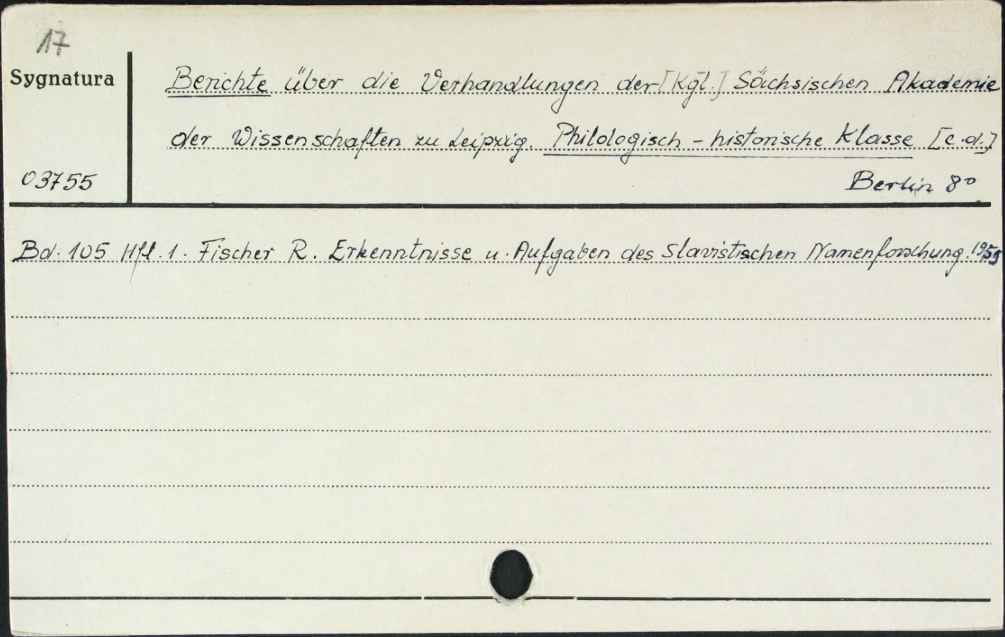 17
Sygnatura
03755
Berichte über die Verhandlungen der [Kgl.] Sächsischen Akademie
der Wissenschaften zu Leipzig Philologisch - historische Klasse [c.d.]
Berlin 8°
Bd. 105 Hft. 1. Fischer R. Erkenntnisse u. Aufgaben des slavistischen Namenforschung. 1959